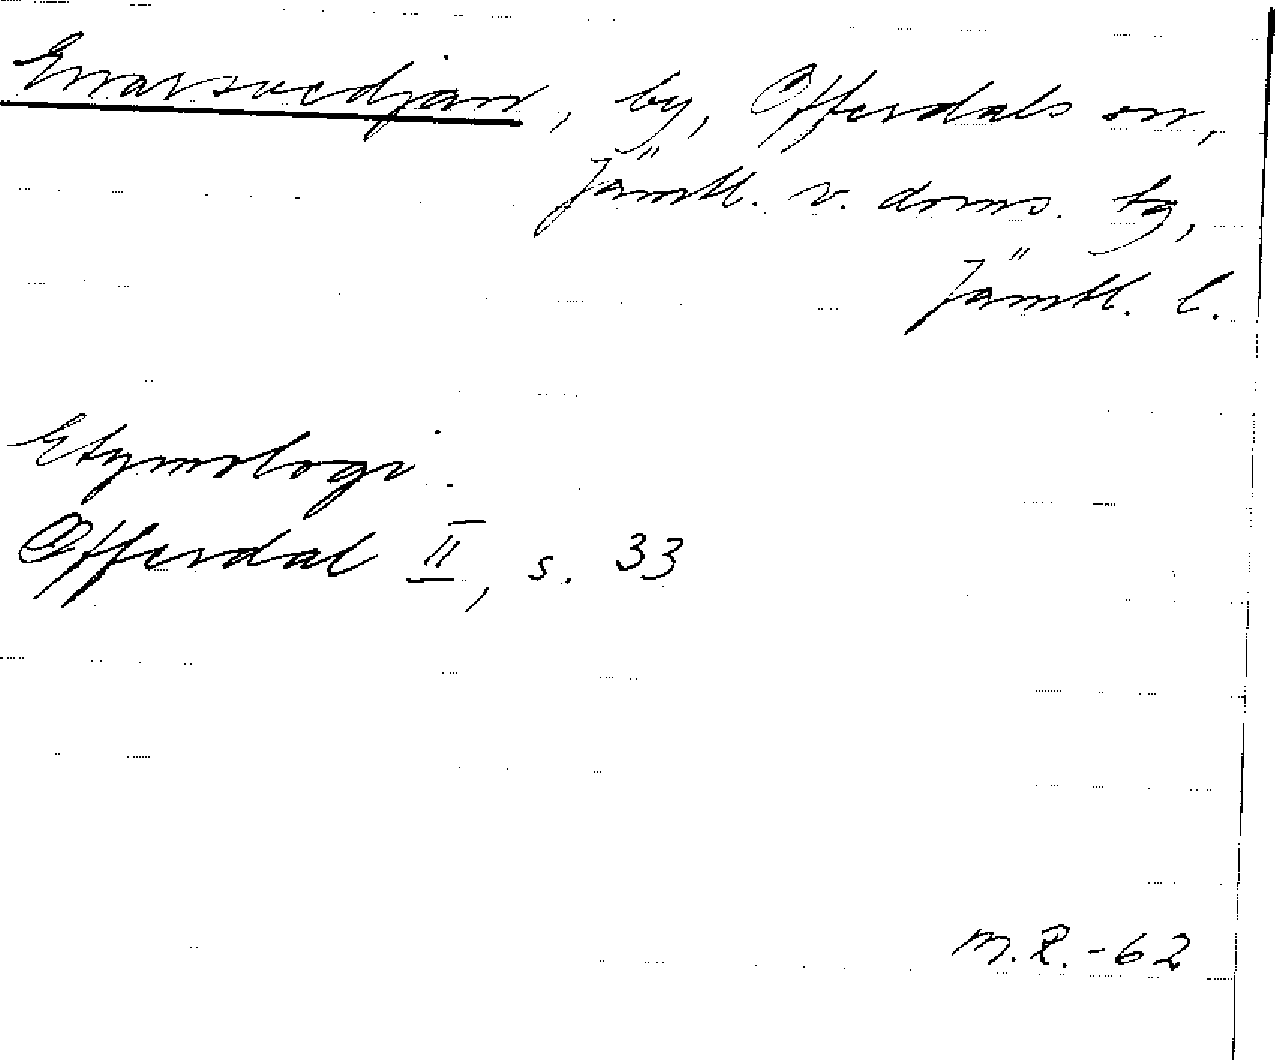 Enarsvedjan, by, Offerdals sn,
Jämtl. v. doms. tg,
Jämtl. l.
Etymologi.
Offerdal II, s. 33
M.R.-62